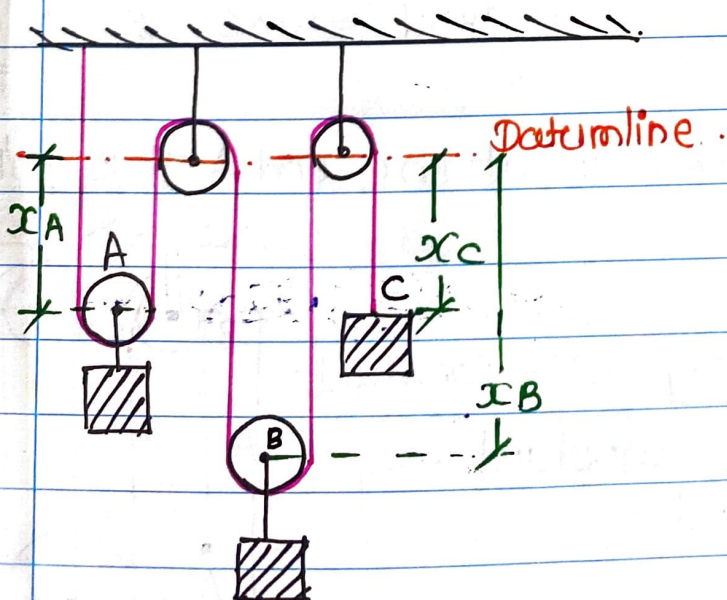 Datumline.
xA
A
xC
C
xB
B